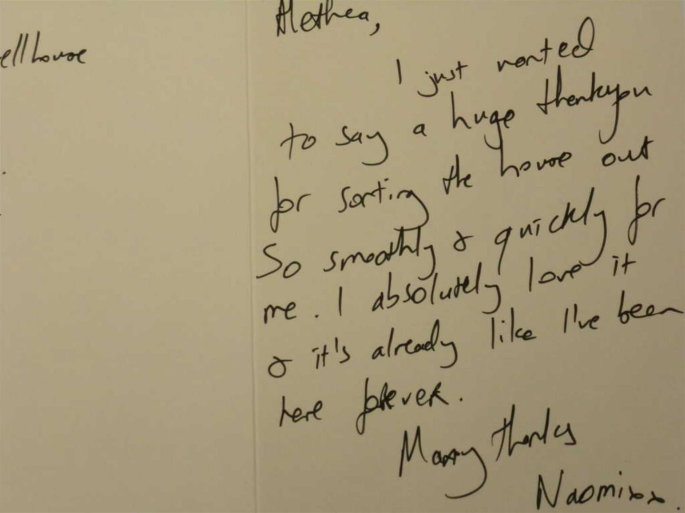 ellhouse
Alethea,
I just wanted
to say a huge thankyou
for sorting the house out
So smoothly & quickly for
me. I absolutely love it
& it's already like I've been
here forever.
Many thanks
Naomi xx.